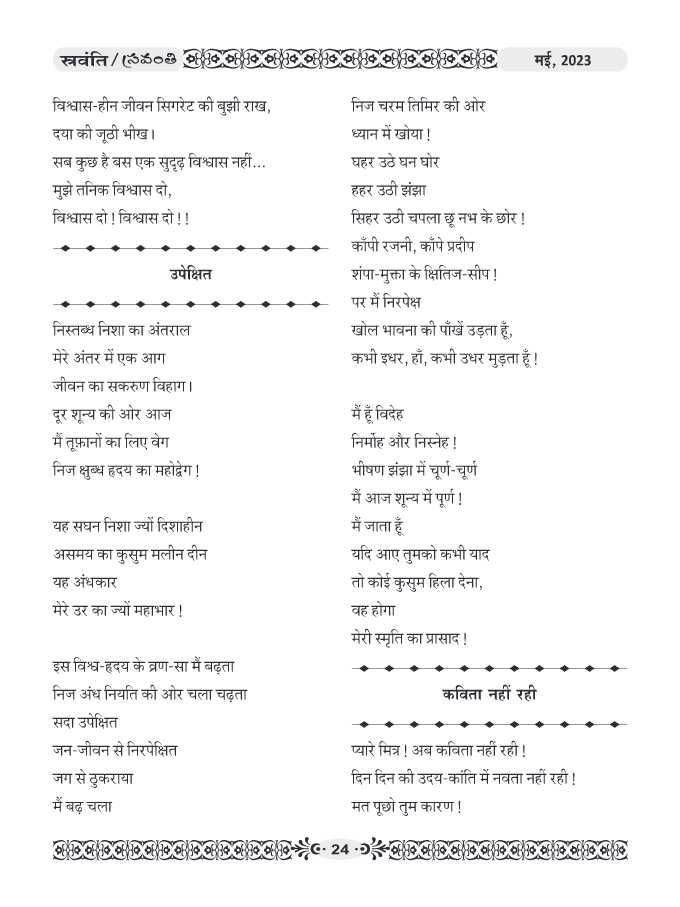 स्रवंति / స్రవంతి
मई, 2023
विश्वास-हीन जीवन सिगरेट की बुझी राख,
दया की जूठी भीख।
सब कुछ है बस एक सुदृढ़ विश्वास नहीं...
मुझे तनिक विश्वास दो,
विश्वास दो ! विश्वास दो ! !
उपेक्षित
निस्तब्ध निशा का अंतराल
मेरे अंतर में एक आग
जीवन का सकरुण विहाग।
दूर शून्य की ओर आज
मैं तूफ़ानों का लिए वेग
निज क्षुब्ध हृदय का महोद्वेग !
यह सघन निशा ज्यों दिशाहीन
असमय का कुसुम मलीन दीन
यह अंधकार
मेरे उर का ज्यों महाभार !
इस विश्व-हृदय के व्रण-सा मैं बढ़ता
निज अंध नियति की ओर चला चढ़ता
सदा उपेक्षित
जन-जीवन से निरपेक्षित
जग से ठुकराया
मैं बढ़ चला
निज चरम तिमिर की ओर
ध्यान में खोया !
घहर उठे घन घोर
हहर उठी झंझा
सिहर उठी चपला छू नभ के छोर !
काँपी रजनी, काँपे प्रदीप
शंपा-मुक्ता के क्षितिज-सीप !
पर मैं निरपेक्ष
खोल भावना की पाँखें उड़ता हूँ,
कभी इधर, हाँ, कभी उधर मुड़ता हूँ !
मैं हूँ विदेह
निर्मोह और निस्नेह !
भीषण झंझा में चूर्ण-चूर्ण
मैं आज शून्य में पूर्ण !
मैं जाता हूँ
यदि आए तुमको कभी याद
तो कोई कुसुम हिला देना,
वह होगा
मेरी स्मृति का प्रासाद !
कविता नहीं रही
प्यारे मित्र ! अब कविता नहीं रही !
दिन दिन की उदय-कांति में नवता नहीं रही !
मत पूछो तुम कारण !
24